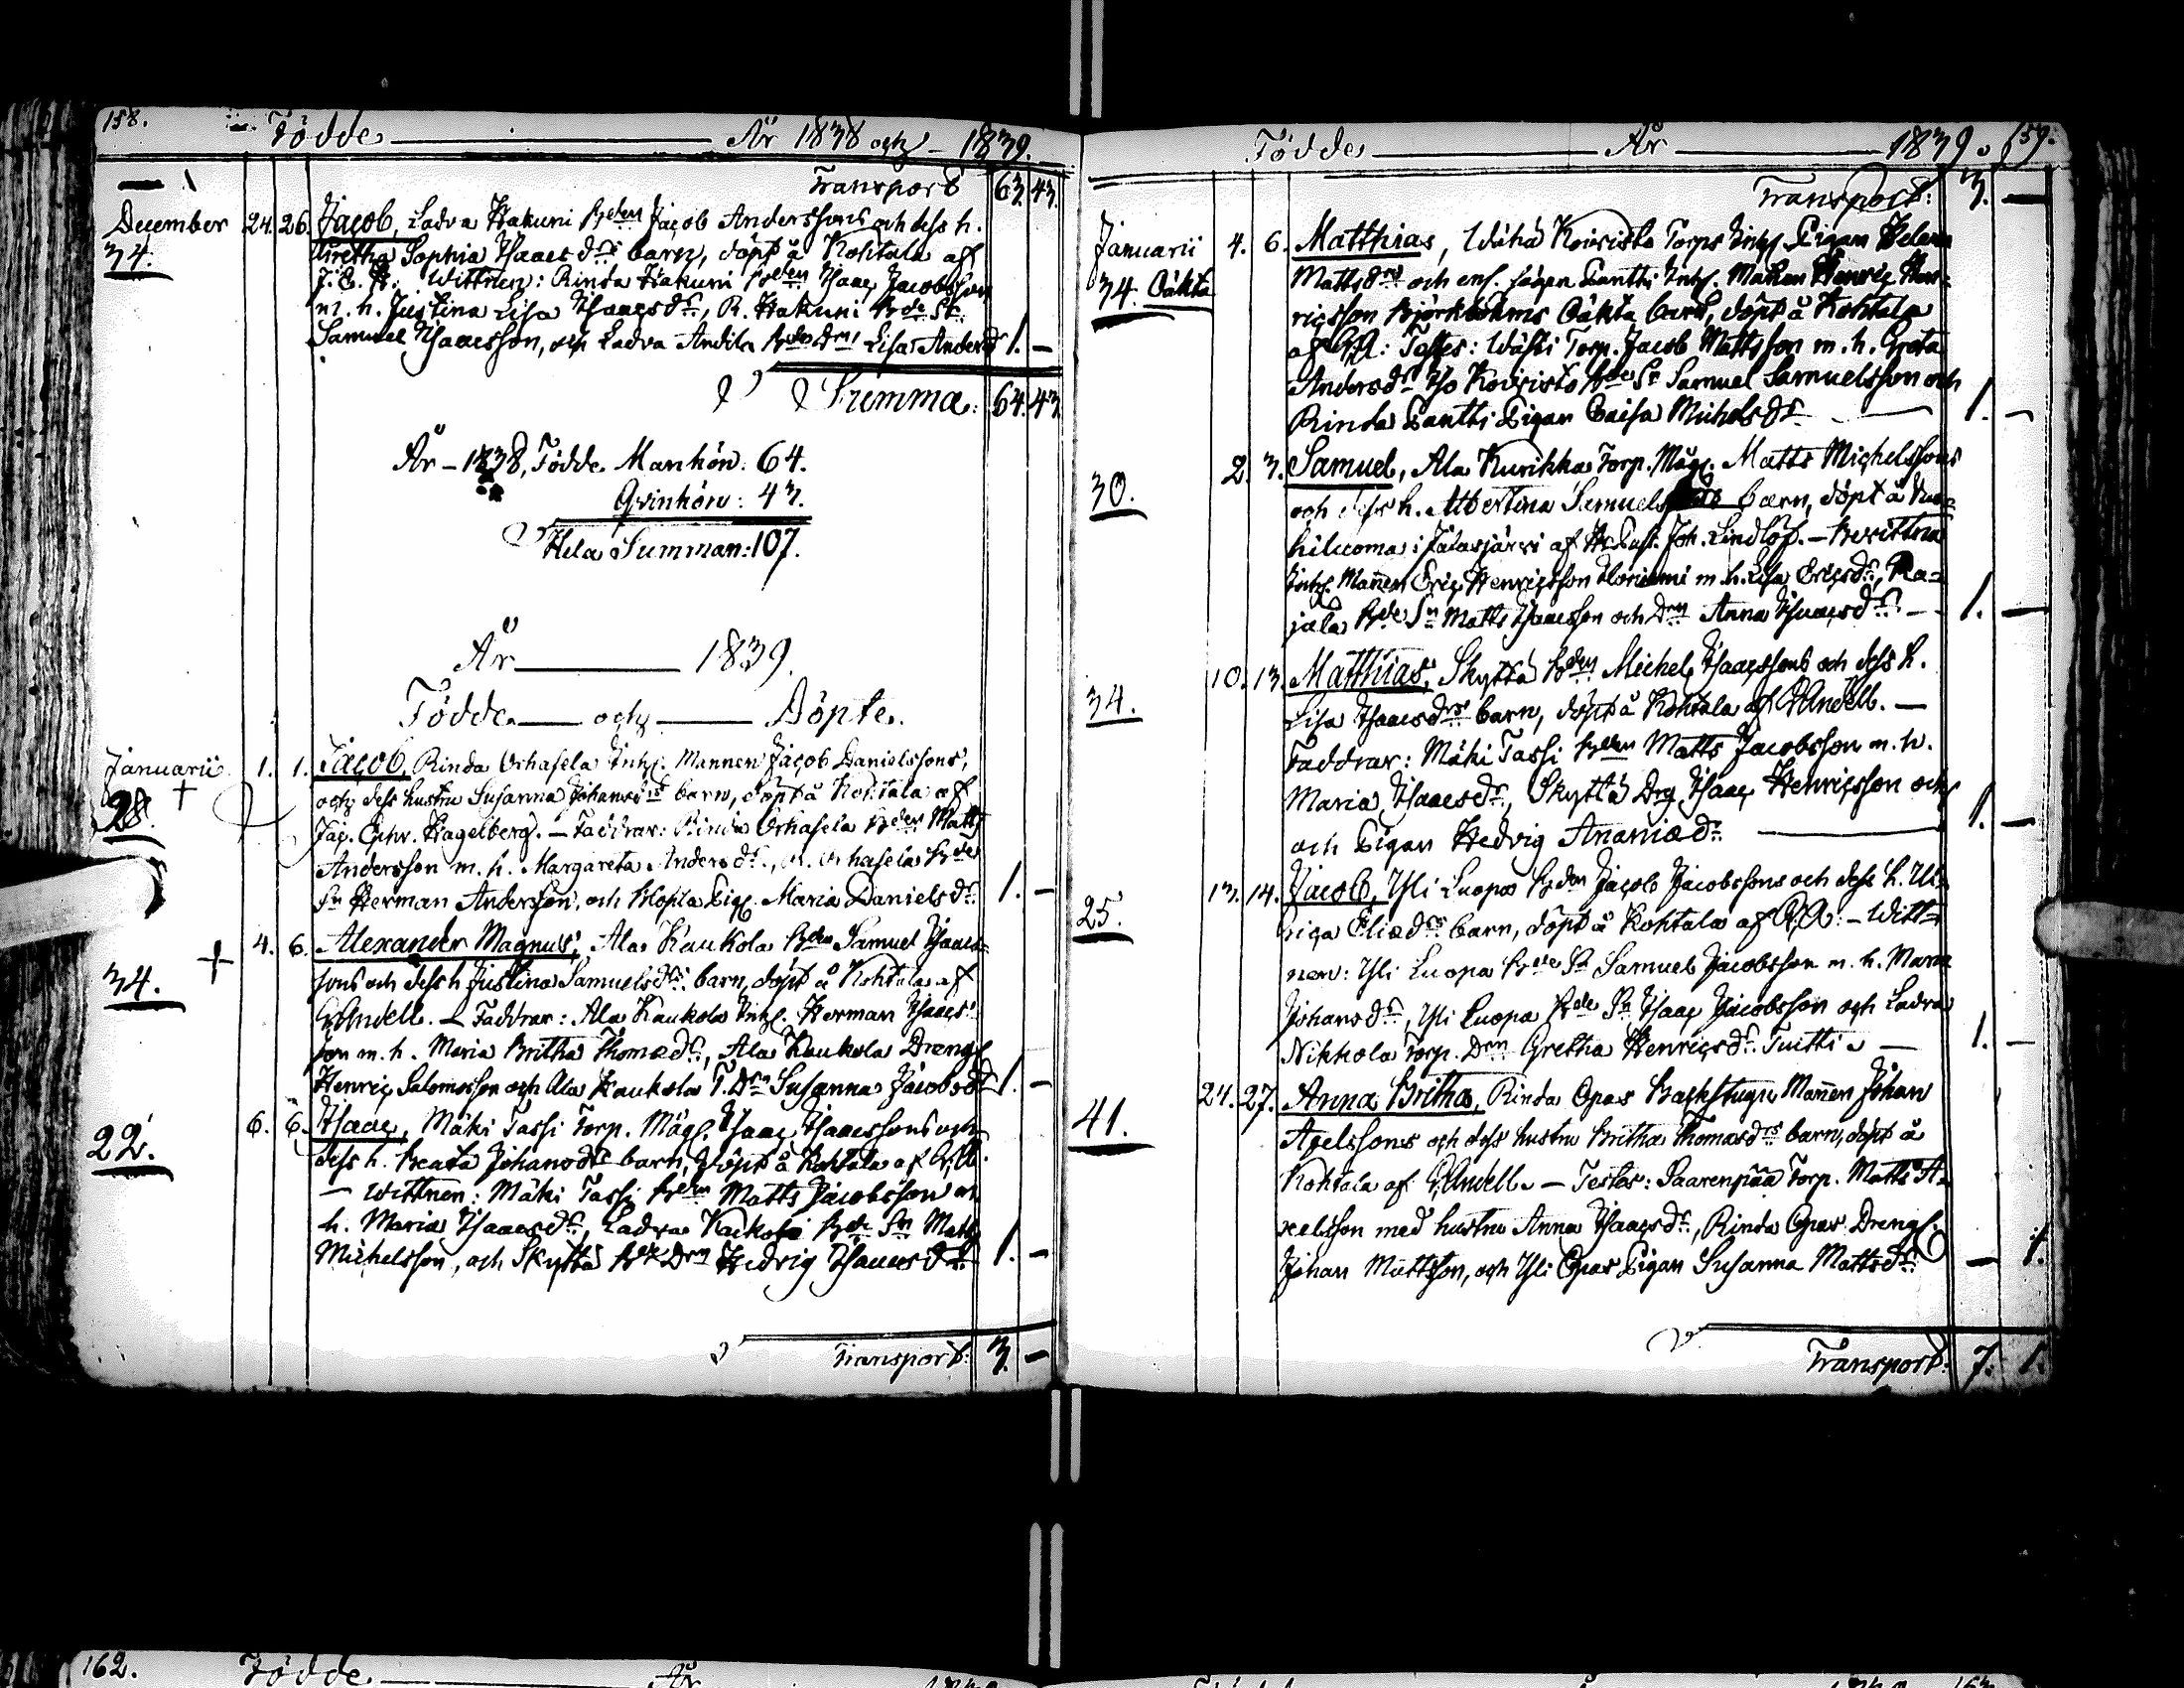 158.
Födde År 1838 och 1839.
Transport 63. 43.
December 24. 26. Jacob, Ladva Hakuni Bden Jacob Anderssons och dess h.
34. Gretha Sophia Isaacsdrs barn, döpt å Kohtala af
J. E. H. Wittnen: Rinda Hakuni Bden Isaac Jacobsson
m. h. Justina Lisa Isaacsdr, R. Hakuni Bde Sn
Samuel Isaacsson, och Ladva Antila Bde Drn Lisa Andersdr 1. —
Summa: 64. 43.
År – 1838, Födde Mankön: 64.
Qvinkön: 43.
Hela Summan: 107.
År 1839.
Födde och Döpte.
Januarii 1. 1. Jacob, Rinda Orhasela Inhs. Mannen Jacob Danielssons,
28. + och dess hustru Susanna Johansdrs barn, döpt å Kohtala af
Jac. Ephr. Hagelberg. – Faddrar: Rinda Orhasela Bden Matts
Andersson m. h. Margareta Andersdr., R. Orhasela Bde
Sn Herman Andersson, och Maria Danielsdr. 1. —
+ 4. 6. Alexander Magnus, Ala Kaukola Bden Samuel Isaacs=
34. sons och dess h Justina Samuelsdrs barn, döpt å Kohtala af
G. Andell. – Faddrar: Ala Kaukola Inhs. Herman Isaacs=
son m. h. Maria Britha Thomædr, Ala Kaukola Drengs
Henric Salomosson och Ala Kaukola T. Drn Susanna Jacobsdr 1. —
22. 6. 6. Isaac, Mäki Tassi Torp. Mågs. Isaac Isaacssons och
dess h. Beata Johansdrs barn, döpt å Kohtala af G. A.
— Wittnen: Mäki Tassi Bden Matts Jacobsson m.
h. Maria Isaacsdr, Ladva Bde Sn Matts
Michelsson, och Skyttä Bde Drn Hedvig Isaacsdr. 1. —
Transport: 3. —
Födde År 1839. 159.
Transport: 3. —
Januarii 4. 6. Matthias, Wähä Koivisto Torps Inhs. Pigan Helena
34. Oäkta Mattsdrs och Pantti Inhs. Mannen Henric Hen=
ricsson Björkbohms Oäkta barn, döpt å Kohtala
af G. A: Testes: Torp. Jacob Mattsson m. h. Greta
Andersdr Iso Koivisto Bde Sn Samuel Samuelsson och
Rinda Pantti Pigan Caisa Michelsdr 1. —
30. 2. 3. Samuel, Ala Kurikka Torp. Mågs. Matts Michelssons
och dess h. Albertina Samuels barn, döpt å
hiluoma i Jalasjärvi af Joh. Lindlöf. –
Inhs. Mannen Eric Henricsson m. h. Lisa Ericsdr, Ra=
jala Bde Sn Matts Isaacsson och Drn Anna Isaacsdr. 1. —
34. 10. 13. Matthias, Skyttä Bden Michel Isaacssons och dess h.
Lisa Isaacsdrs barn, döpt å Kohtala af G. Andell. —
Faddrar: Mäki Tassi Bden Matts Jacobsson m. h.
Maria Isaacsdr, Skyttä Drg Isaac Henricsson och
och Pigan Hedvig Ananiædr. 1. —
25. 13. 14. Jacob, Yli Luopa Bden Jacob Jacobssons och dess h. Ul=
rica Eliædrs barn, döpt å Kohtala af G. A: – Witt=
nen: Yli Luopa Bde Sn Samuel Jacobsson m. h. Maria
Johansdr, Yli Luopa Bde Sn Isaac Jacobsson och Ladva
Nikkola Torp. Drn Gretha Henricsdr. Tuitti. — 1. —
41. 24. 27. Anna Britha, Rinda Opas Backstugu Mannen Johan
Axelssons och dess hustru Britha Thomasdrs barn, döpt å
Kohtala af G. Andell. – Testes: Saarenpää Torp. Matts A=
xelsson med hustru Anna Isaacsdr, Rinda Opas Drengs.
Johan Mattsson, och Yli Opas Pigan Susanna Mattsdr. — 1.
Transport: 7. 1.
162. Födde År